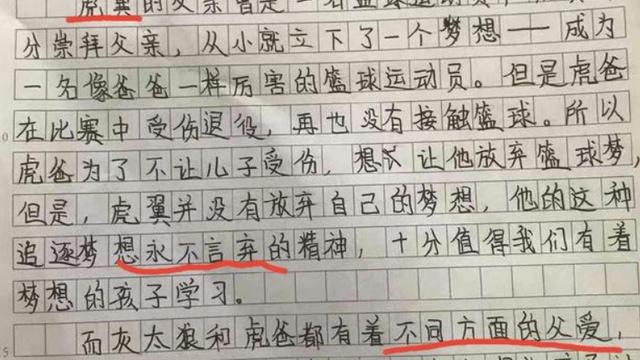 虎翼的父亲曾是一名篮球运动员，
分崇拜父亲，从小就立下了一个梦想——成为
一名像爸爸一样厉害的篮球运动员。但是虎爸
在比赛中受伤退役，再也没有接触篮球。所以
虎爸为了不让儿子受伤，想让他放弃篮球梦，
但是，虎翼并没有放弃自己的梦想，他的这种
追逐梦想永不言弃的精神，十分值得我们有着
梦想的孩子学习。
而灰太狼和虎爸都有着不同方面的父爱，